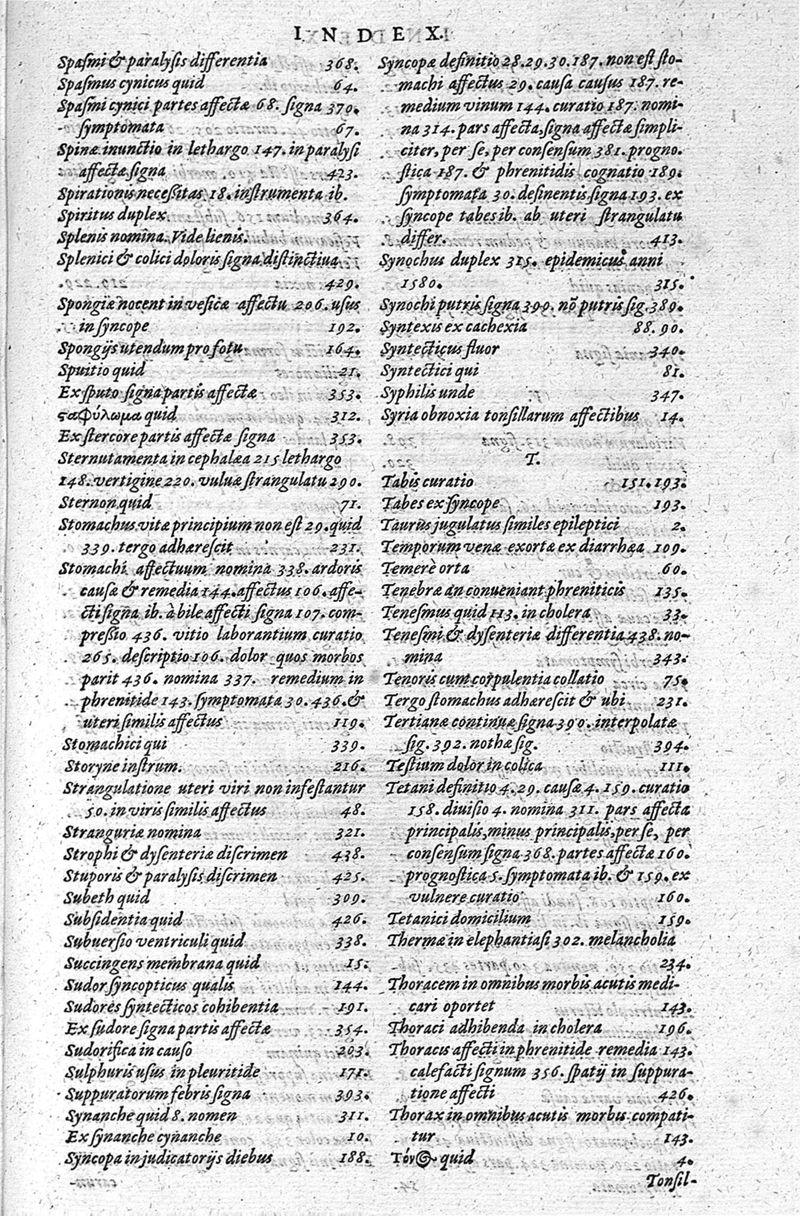 I N D E X.
Spasmi & paralysis differentia 368.
Spasmus cynicus quid 64.
Spasmi cynici partes affectæ 68. signa 370.
symptomata 67.
Spinæ inunctio in lethargo 147. in paralysi
affectæ signa 423.
Spirationis necessitas 18. instrumenta ib.
Spiritus duplex 364.
Splenis nomina. Vide lienis.
Splenici & colici doloris signa distinctiua
429.
Spongiæ nocent in vesicæ affectu 206. usus
in syncope 192.
Spongijs utendum pro fotu 164.
Spuitio quid 21.
Ex sputo signa partis affectæ 353.
ϛαφύλωμα quid 312.
Ex stercore partis affectæ signa 353.
Sternutamenta in cephalæa 215 lethargo
148. vertigine 220. vuluæ strangulatu 290.
Sternon quid 71.
Stomachus vitæ principium non est 29. quid
339. tergo adhærescit 231.
Stomachi affectuum nomina 338. ardoris
causæ & remedia 144. affectus 106. affe-
cti signa ib. à bile affecti signa 107. com-
pressio 436. vitio laborantium curatio
265. descriptio 106. dolor quos morbos
parit 436. nomina 337. remedium in
phrenitide 143. symptomata 30. 436. &
uteri similis affectus 119.
Stomachici qui 339.
Storyne instrum. 216.
Strangulatione uteri viri non infestantur
50. in viris similis affectus 48.
Stranguriæ nomina 321.
Strophi & dysenteriæ discrimen 438.
Stuporis & paralysis discrimen 425.
Subeth quid 309.
Subsidentia quid 426.
Subuersio ventriculi quid 338.
Succingens membrana quid 15.
Sudor syncopticus qualis 144.
Sudores syntecticos cohibentia 191.
Ex sudore signa partis affectæ 354.
Sudorifica in causo 203.
Sulphuris usus in pleuritide 171.
Suppuratorum febris signa 393.
Synanche quid 8. nomen 311.
Ex synanche cynanche 10.
Syncopa in judicatorijs diebus 188.
Syncopæ definitio 28. 29. 30. 187. non est sto-
machi affectus 29. causa causus 187. re-
medium vinum 144. curatio 187. nomi-
na 314. pars affecta, signa affectæ simpli-
citer, per se, per consensum 381. progno-
stica 187. & phrenitidis cognatio 189.
symptomata 30. desinentis signa 193. ex
syncope tabes ib. ab uteri strangulatu
differ. 413.
Synochus duplex 315. epidemicus anni
1580. 315.
Synochi putris signa 390. nõ putris sig. 389.
Syntexis ex cachexia 88. 90.
Syntecticus fluor 340.
Syntectici qui 81.
Syphilis unde 347.
Syria obnoxia tonsillarum affectibus 14.
T.
Tabis curatio 151. 193.
Tabes ex syncope 193.
Tauris jugulatis similes epileptici 2.
Temporum venæ exortæ ex diarrhæa 109.
Temerè orta 60.
Tenebræ an conueniant phreniticis 135.
Tenesmus quid 113. in cholera 33.
Tenesmi & dysenteriæ differentia 438. no-
mina 343.
Tenoris cum corpulentia collatio 75.
Tergo stomachus adhærescit & ubi 231.
Tertianæ continuæ signa 390. interpolatæ
sig. 392. nothæ sig. 394.
Testium dolor in colica 111.
Tetani definitio 4. 29. causæ 4. 159. curatio
158. diuisio 4. nomina 311. pars affecta
principalis, minus principalis, per se, per
consensum signa 368. partes affectæ 160.
prognostica 5. symptomata ib. & 159. ex
vulnere curatio 160.
Tetanici domicilium 159.
Thermæ in elephantiasi 302. melancholia
234.
Thoracem in omnibus morbis acutis medi-
cari oportet 143.
Thoraci adhibenda in cholera 196.
Thoracis affecti in phrenitide remedia 143.
calefacti signum 356. spatij in suppura-
tione affecti 426.
Thorax in omnibus acutis morbis compati-
tur 143.
Τόνος quid 4.
Tonsil-